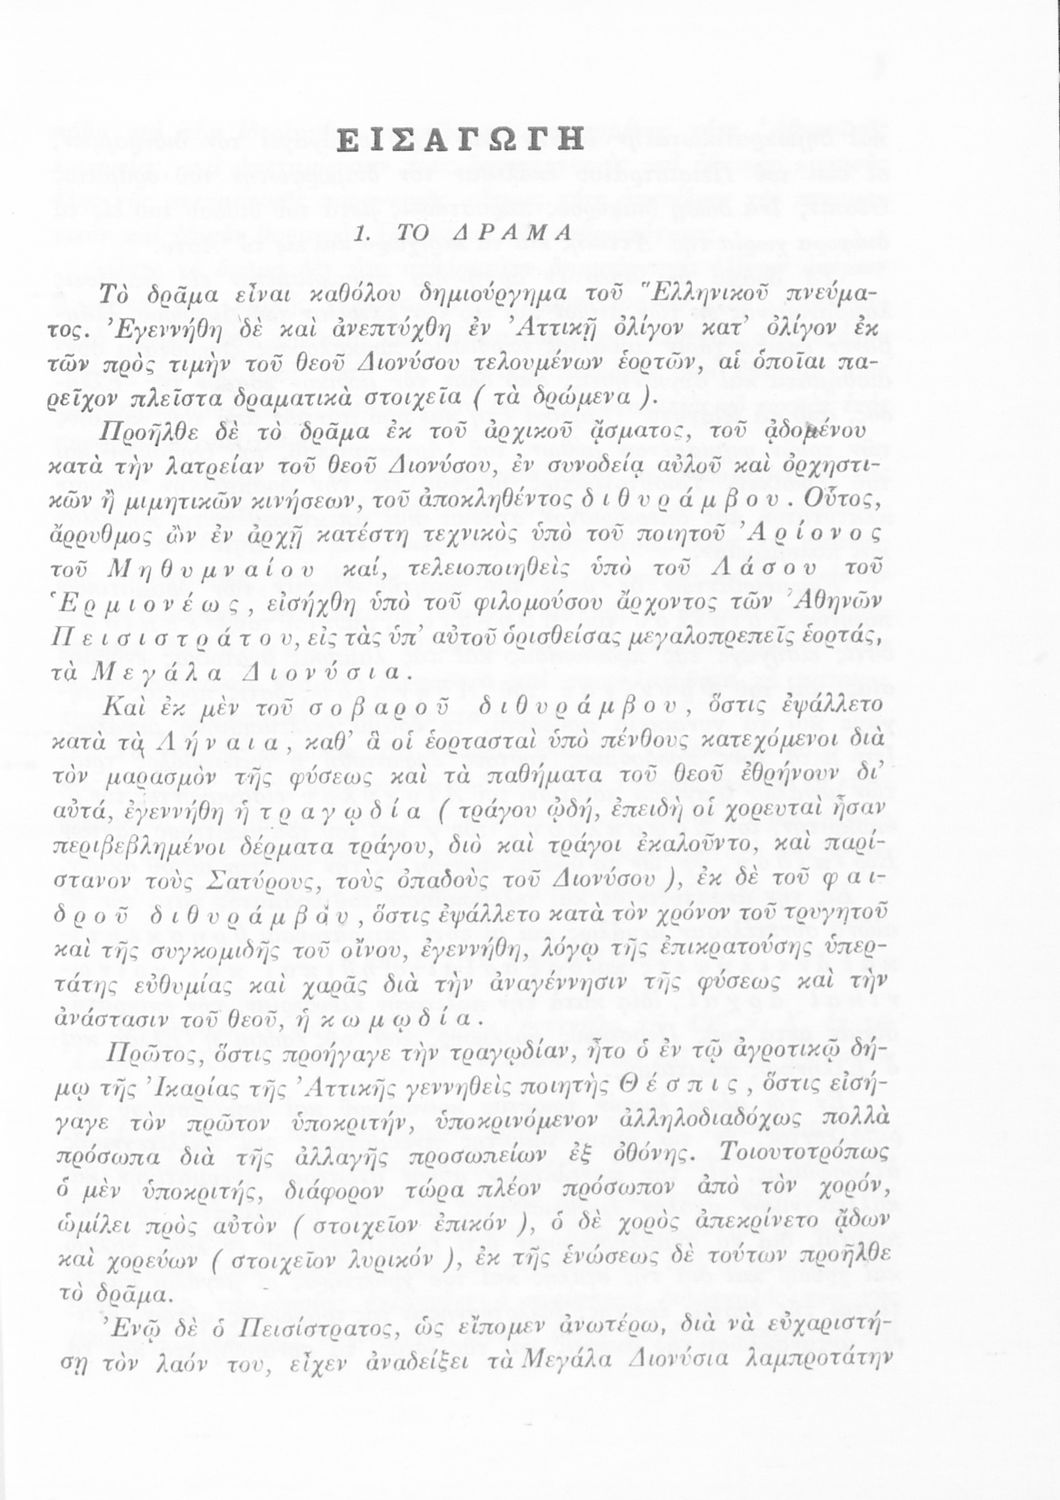 ΕΙΣΑΓΩΓΗ
1. ΤΟ ΔΡΑΜΑ
Τὸ δρᾶμα εἶναι καθόλου δημιούργημα τοῦ Ἑλληνικοῦ πνεύμα-
τος. Ἐγεννήθη δὲ καὶ ἀνεπτύχθη ἐν Ἀττικῇ ὀλίγον κατ’ ὀλίγον ἐκ
τῶν πρὸς τιμὴν τοῦ θεοῦ Διονύσου τελουμένων ἑορτῶν, αἱ ὁποῖαι πα-
ρεῖχον πλεῖστα δραματικὰ στοιχεῖα ( τὰ δρώμενα ).
Προῆλθε δὲ τὸ δρᾶμα ἐκ τοῦ ἀρχικοῦ ᾄσματος, τοῦ ᾀδομένου
κατὰ τὴν λατρείαν τοῦ θεοῦ Διονύσου, ἐν συνοδείᾳ αὐλοῦ καὶ ὀρχηστι-
κῶν ἢ μιμητικῶν κινήσεων, τοῦ ἀποκληθέντος διθυράμβου. Οὗτος,
ἄρρυθμος ὢν ἐν ἀρχῇ κατέστη τεχνικὸς ὑπὸ τοῦ ποιητοῦ Ἀρίονος
τοῦ Μηθυμναίου καί, τελειοποιηθεὶς ὑπὸ τοῦ Λάσου τοῦ
Ἑρμιονέως, εἰσήχθη ὑπὸ τοῦ φιλομούσου ἄρχοντος τῶν Ἀθηνῶν
Πεισιστράτου, εἰς τὰς ὑπ’ αὐτοῦ ὁρισθείσας μεγαλοπρεπεῖς ἑορτάς,
τὰ Μεγάλα Διονύσια.
Καὶ ἐκ μὲν τοῦ σοβαροῦ διθυράμβου, ὅστις ἐψάλλετο
κατὰ τὰ Λήναια, καθ’ ἃ οἱ ἑορτασταὶ ὑπὸ πένθους κατεχόμενοι διὰ
τὸν μαρασμὸν τῆς φύσεως καὶ τὰ παθήματα τοῦ θεοῦ ἐθρήνουν δι’
αὐτά, ἐγεννήθη ἡ τραγῳδία ( τράγου ᾠδή, ἐπειδὴ οἱ χορευταὶ ἦσαν
περιβεβλημένοι δέρματα τράγου, διὸ καὶ τράγοι ἐκαλοῦντο, καὶ παρί-
στανον τοὺς Σατύρους, τοὺς ὀπαδοὺς τοῦ Διονύσου ), ἐκ δὲ τοῦ φαι-
δροῦ διθυράμβου, ὅστις ἐψάλλετο κατὰ τὸν χρόνον τοῦ τρυγητοῦ
καὶ τῆς συγκομιδῆς τοῦ οἴνου, ἐγεννήθη, λόγῳ τῆς ἐπικρατούσης ὑπερ-
τάτης εὐθυμίας καὶ χαρᾶς διὰ τὴν ἀναγέννησιν τῆς φύσεως καὶ τὴν
ἀνάστασιν τοῦ θεοῦ, ἡ κωμῳδία.
Πρῶτος, ὅστις προήγαγε τὴν τραγῳδίαν, ἦτο ὁ ἐν τῷ ἀγροτικῷ δή-
μῳ τῆς Ἰκαρίας τῆς Ἀττικῆς γεννηθεὶς ποιητὴς Θέσπις, ὅστις εἰσή-
γαγε τὸν πρῶτον ὑποκριτήν, ὑποκρινόμενον ἀλληλοδιαδόχως πολλὰ
πρόσωπα διὰ τῆς ἀλλαγῆς προσωπείων ἐξ ὀθόνης. Τοιουτοτρόπως
ὁ μὲν ὑποκριτής, διάφορον τώρα πλέον πρόσωπον ἀπὸ τὸν χορόν,
ὡμίλει πρὸς αὐτὸν ( στοιχεῖον ἐπικόν ), ὁ δὲ χορὸς ἀπεκρίνετο ᾄδων
καὶ χορεύων ( στοιχεῖον λυρικόν ), ἐκ τῆς ἑνώσεως δὲ τούτων προῆλθε
τὸ δρᾶμα.
Ἐνῷ δὲ ὁ Πεισίστρατος, ὡς εἴπομεν ἀνωτέρω, διὰ νὰ εὐχαριστή-
σῃ τὸν λαόν του, εἶχεν ἀναδείξει τὰ Μεγάλα Διονύσια λαμπροτάτην